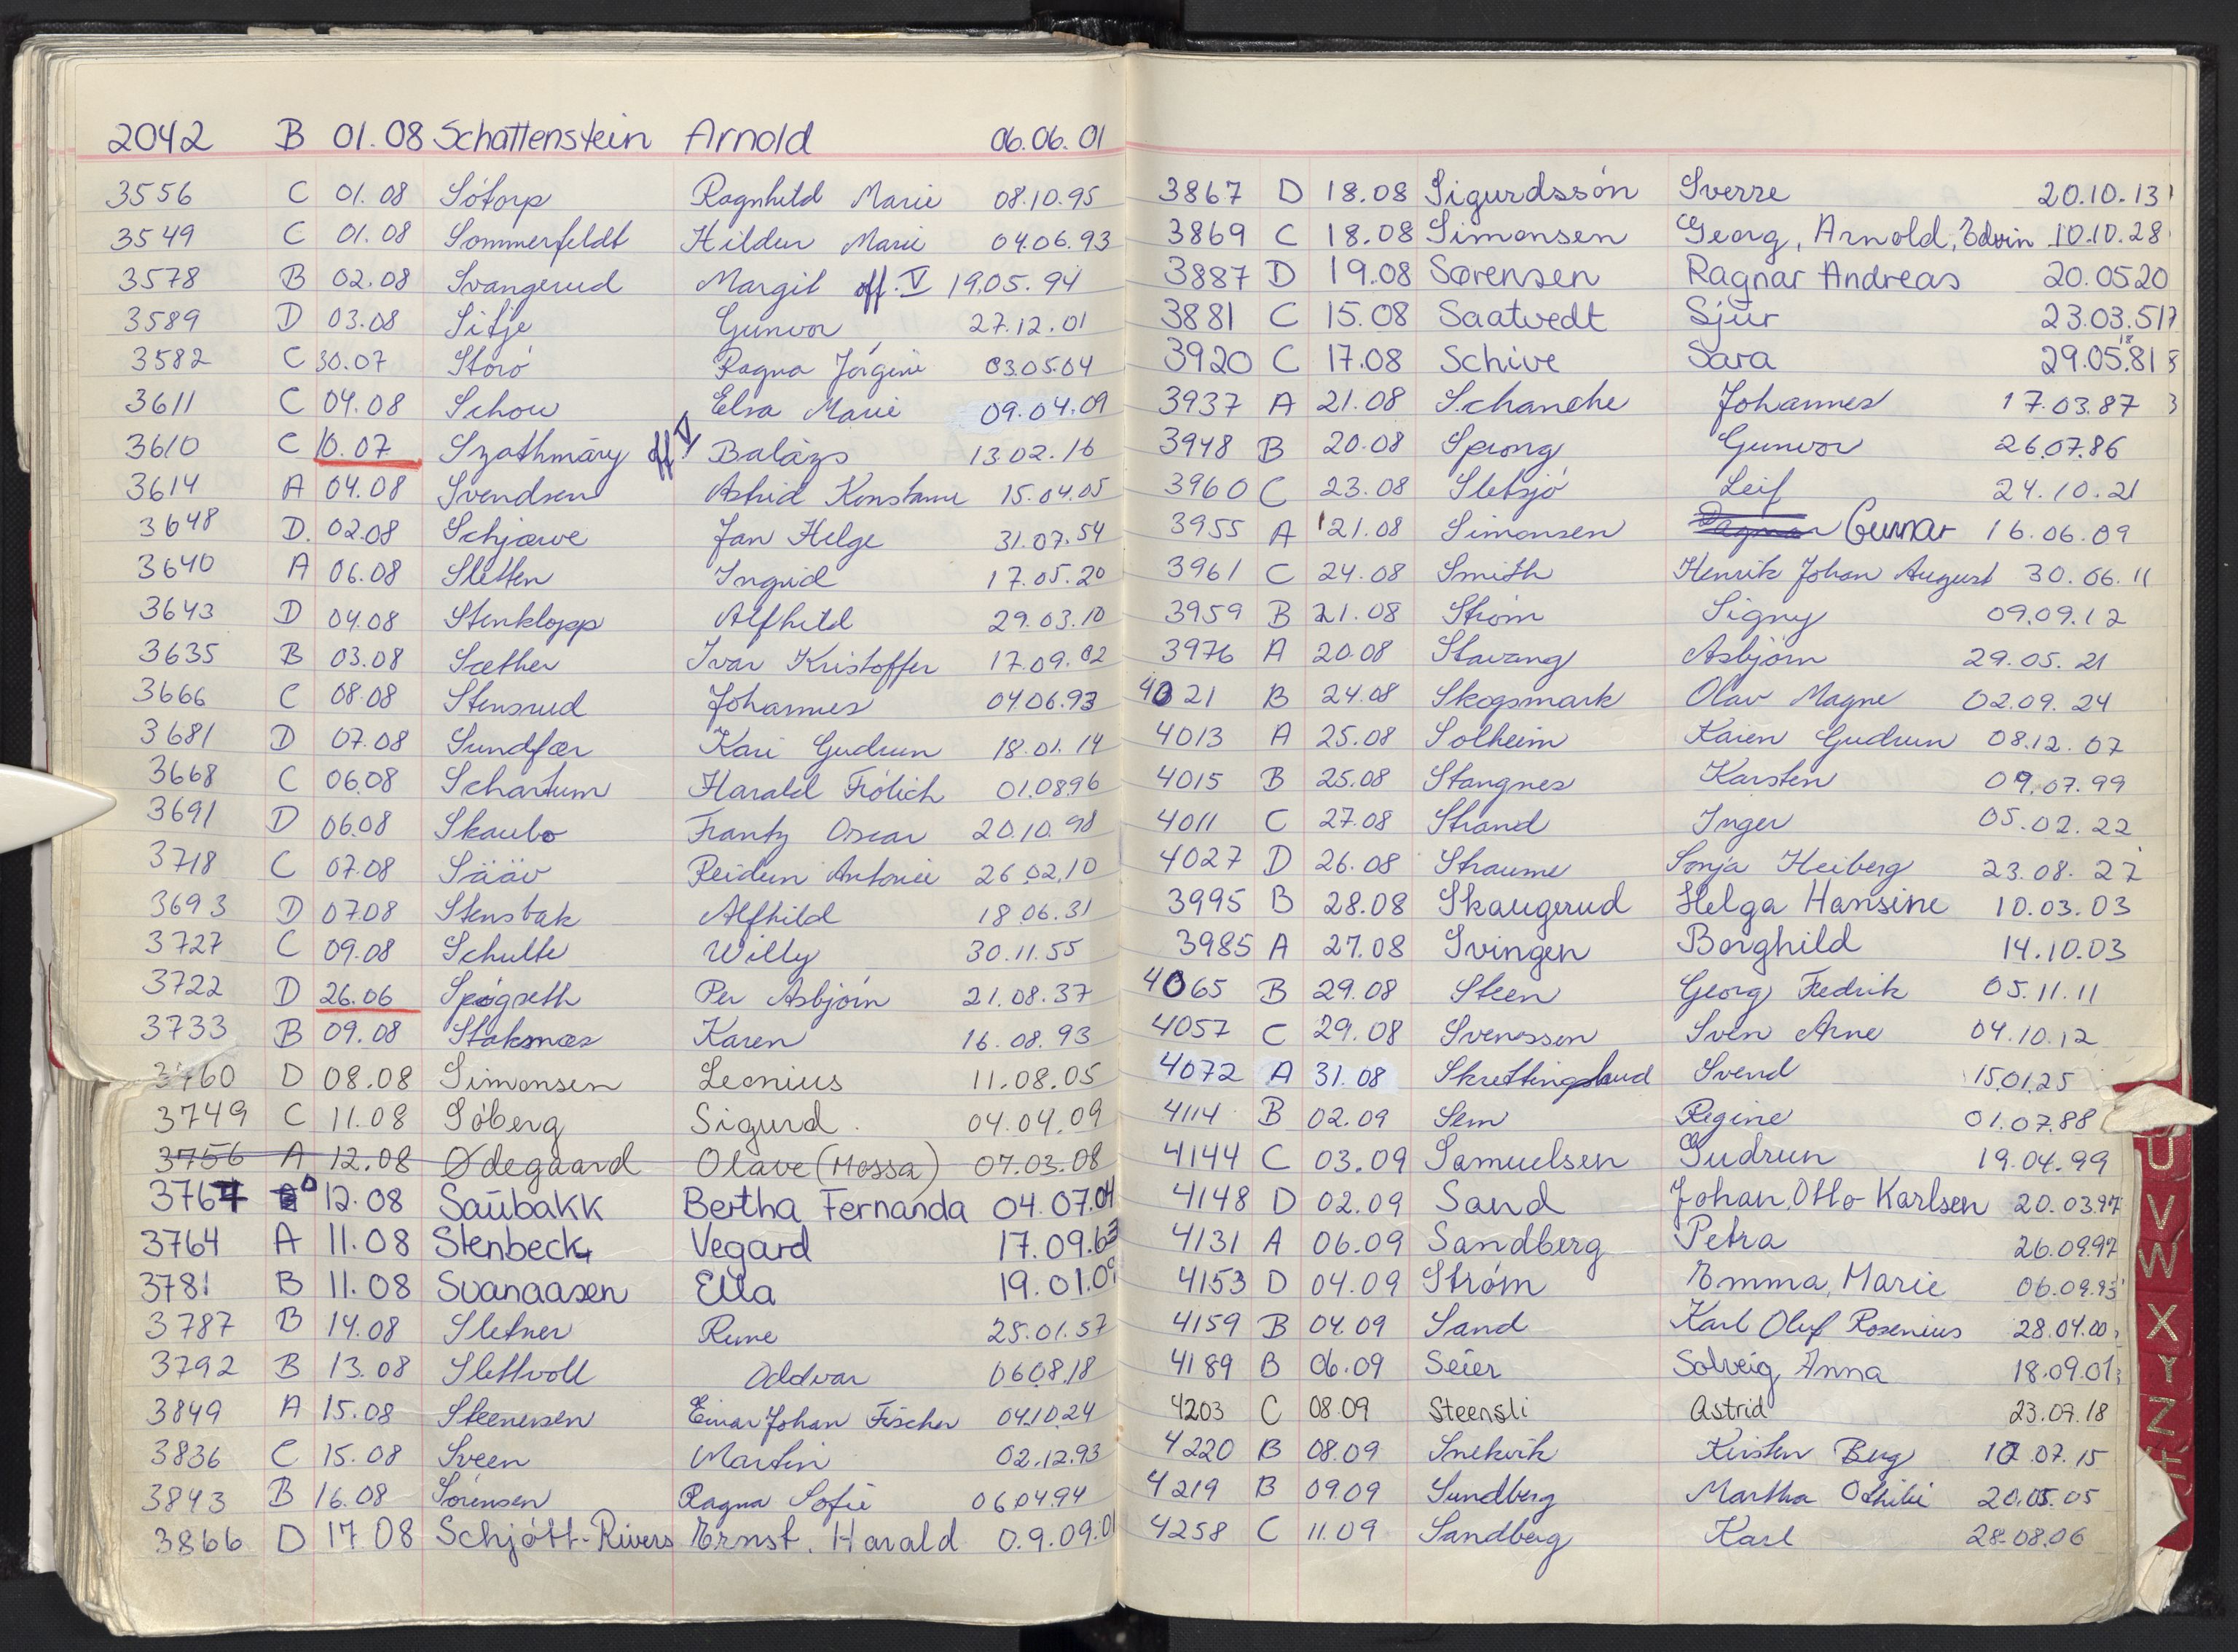 2042 B 01.08 Schattenstein Arnold 06.06.01
3556 C 01.08 Sótorp Ragnhild Marie 08.10.95
3549 C 01.08 Sommerfeldt Hildur Marie 04.06.93
3578 B 02.08 Svangerud Margit off. V 19.05.94
3589 D 03.08 Sitje Gunvor 27.12.01
3582 C 30.07 Storó Ragna Jórgine 03.05.04
3611 C 04.08 Schou Elsa Marie 09.04.09
3610 C 10.07 Szathmáry off V Balázs 13.02.16
3614 A 04.08 Svendsen Astrid Konstanse 15.04.05
3648 D. 02.08 Schjærve Jan Helge 31.07.54
3640 A 06.08 Sletten Ingrid 17.05.20
3643 D 04.08 Stenklopp Alfhild 29.03.10
3635 B 03.08 Sæther Ivar Kristoffer 17.09.02
3666 C 08.08 Stensrud Johannes 04.06.93
3681 D 07.08 Sundfær Kari Gudrun 18.01.14
3668 C 06.08 Schartum Harald Frólich 01.08.96
3691 D 06.08 Skaubo Frantz Oscar 20.10.98
3718 C 07.08 Sääv Reidun Antonie 26.02.10
3693 D 07.08 Stensbak Alfhild 18.06.31
3727 C 09.08 Schulte Willy 30.11.55
3722 D 26.06 Spógseth Per Asbjórn 21.08.37
3733 B 09.08 Staksnæs Karen 16.08.93
3760 D 08.08 Simonsen Leonius 11.08.05
3749 C 11.08 Sóberg Sigurd. 04.04.09
3756 A 12.08 Ødegaard Olave (Mossa) 07.03.08
3767 D 12.08 Saubakk Bertha Fernanda 04.07.04
3764 A 11.08 Stenbeck Vegard 17.09.63
3781 B 11.08 Svanaasen Ella 19.01.09
3787 B 14.08 Sletner Rune 25.01.57
3792 B 13.08 Slettvoll Oddvar 06.08.18
3849 A 15.08 Steenersen Einar Johan Fischer 04.10.24
3836 C 15.08 Sveen Martin 02.12.93
3843 B 16.08 Sórensen Ragna Sofie 06.04.94
3866 D 17.08 Schjótt-Rivers Ernst. Harald 0.9.09.0
3867 D 18.08 Sigurdssón Sverre 20.10.13
3869 C 18.08 Simonsen Georg, Arnold, Edvin 10.10.28
3887 D 19.08 Sørensen Ragnar Andreas 20.05.20
3881 C 15.08 Saatvedt Sjur 23.03.51
3920 C 17.08 Schive Sara 29.05.81
3937 A 21.08 Schanche Johannes 17.03.87
3948 B 20.08 Sprong Gunvor 26.07.86
3960 C 23.08 Sletsjó Leif 24.10.21
3955 A 21.08 Simonsen Ragnar Gunnar 16.06.09
3961 C 24.08 Smith Henrik Johan August 30.06.11
3959 B 21.08 Stróm Signy 09.09.12
3976 A 20.08 Stavang Asbjórn 29.05.21
4021 B 24.08 Skogsmark Olav Magne 02.09.24
4013 A 25.08 Solheim Karen Gudrun 08.12.07
4015 B 25.08 Stangnes Karsten 09.07.99
4011 C 27.08 Strand Inger 05.02.22
4027 D 26.08 Straume Sonja Heiberg 23.08.27
3995 B 28.08 Skaugerud Helga Hansine 10.03.03
3985 A 27.08 Svingen Borghild 14.10.03
4065 B 29.08 Steen Georg Fredrik 05.11.11
4057 C 29.08 Svenssen Sven Arne 04.10.12
4072 A 31.08 Skrettingsland Svend 15.01.25
4114 B 02.09 Sem Regine 01.07.88
4144 C 03.09 Samuelsen Gudrun 19.04.99
4148 D 02.09 Sand Johan, Otto Karlsen 20.03.97
4131 A 06.09 Sandberg Petra 26.09.97
4153 D 04.09 Stróm Emma, Marie 06.09.93
4159 B 04.09 Sand Karl Oluf Rosenius 28.04.00
4189 B 06.09 Seier Solveig, Anna 18.09.01
4203 C 08.09 Steensli Astrid 23.09.18
4220 B 08.09 Snekvik Kirsten Berg 10.07.15
4219 B 09.09 Sundberg Martha Othilie 20.05.05
4258 C 11.09 Sandberg Karl 28.08.06
U
V
W
X
Y
Z